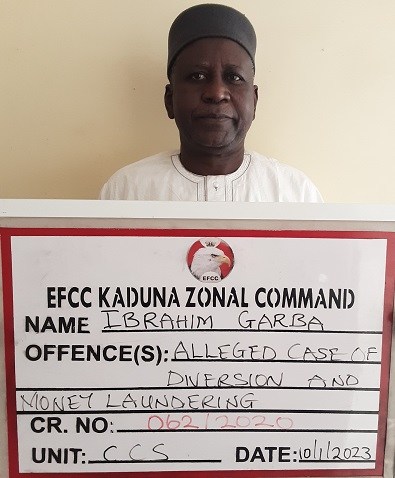 EFCC
EFCC KADUNA ZONAL COMMAND
NAME IBRAHIM GARBA
OFFENCE(S): ALLEGED CASE OF
DIVERSION AND
MONEY LAUNDERING
CR. NO: 062/2020
UNIT: CCS DATE: 10/1/2023